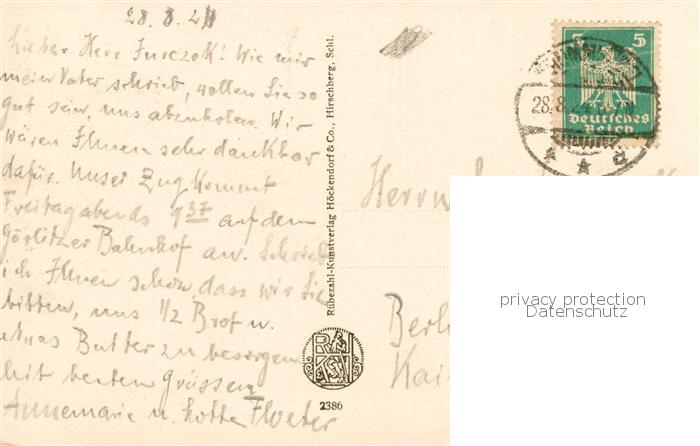 28.8.24
Lieber Herr Jurczok! Wie mir
mein Vater schrieb, wollen Sie so
gut sein, uns abzuholen. Wir
wären Ihnen sehr dankbar
dafür. Unser Zug kommt
Freitagabends 9 37 auf dem
Görlitzer Bahnhof an. Schrieb
ich Ihnen schon, dass wir Sie
bitten, uns 1/2 Brot u.
etwas Butter zu besorgen
Mit besten Grüssen
Annemarie u. Lotte
Rübezahl-Kunstverlag Höckendorf & Co., Hirschberg, Schl.
R K
2386
5 5
Deutsches
Reich
28.8.
Herrn
Berli
Kai
privacy protection
Datenschutz